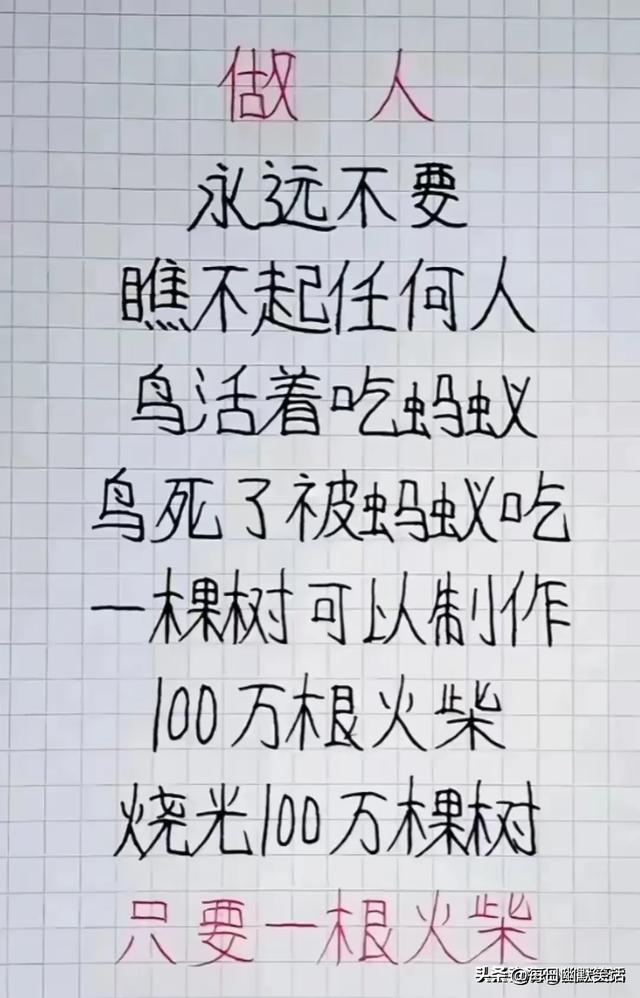 做 人
永远不要
瞧不起任何人
鸟活着吃蚂蚁
鸟死了被蚂蚁吃
一棵树可以制作
100万根火柴
烧光100万棵树
只要一根火柴